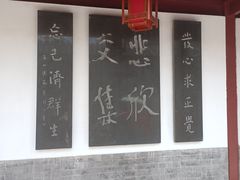 發心求正覺
悲欣
交集
忘己濟群生